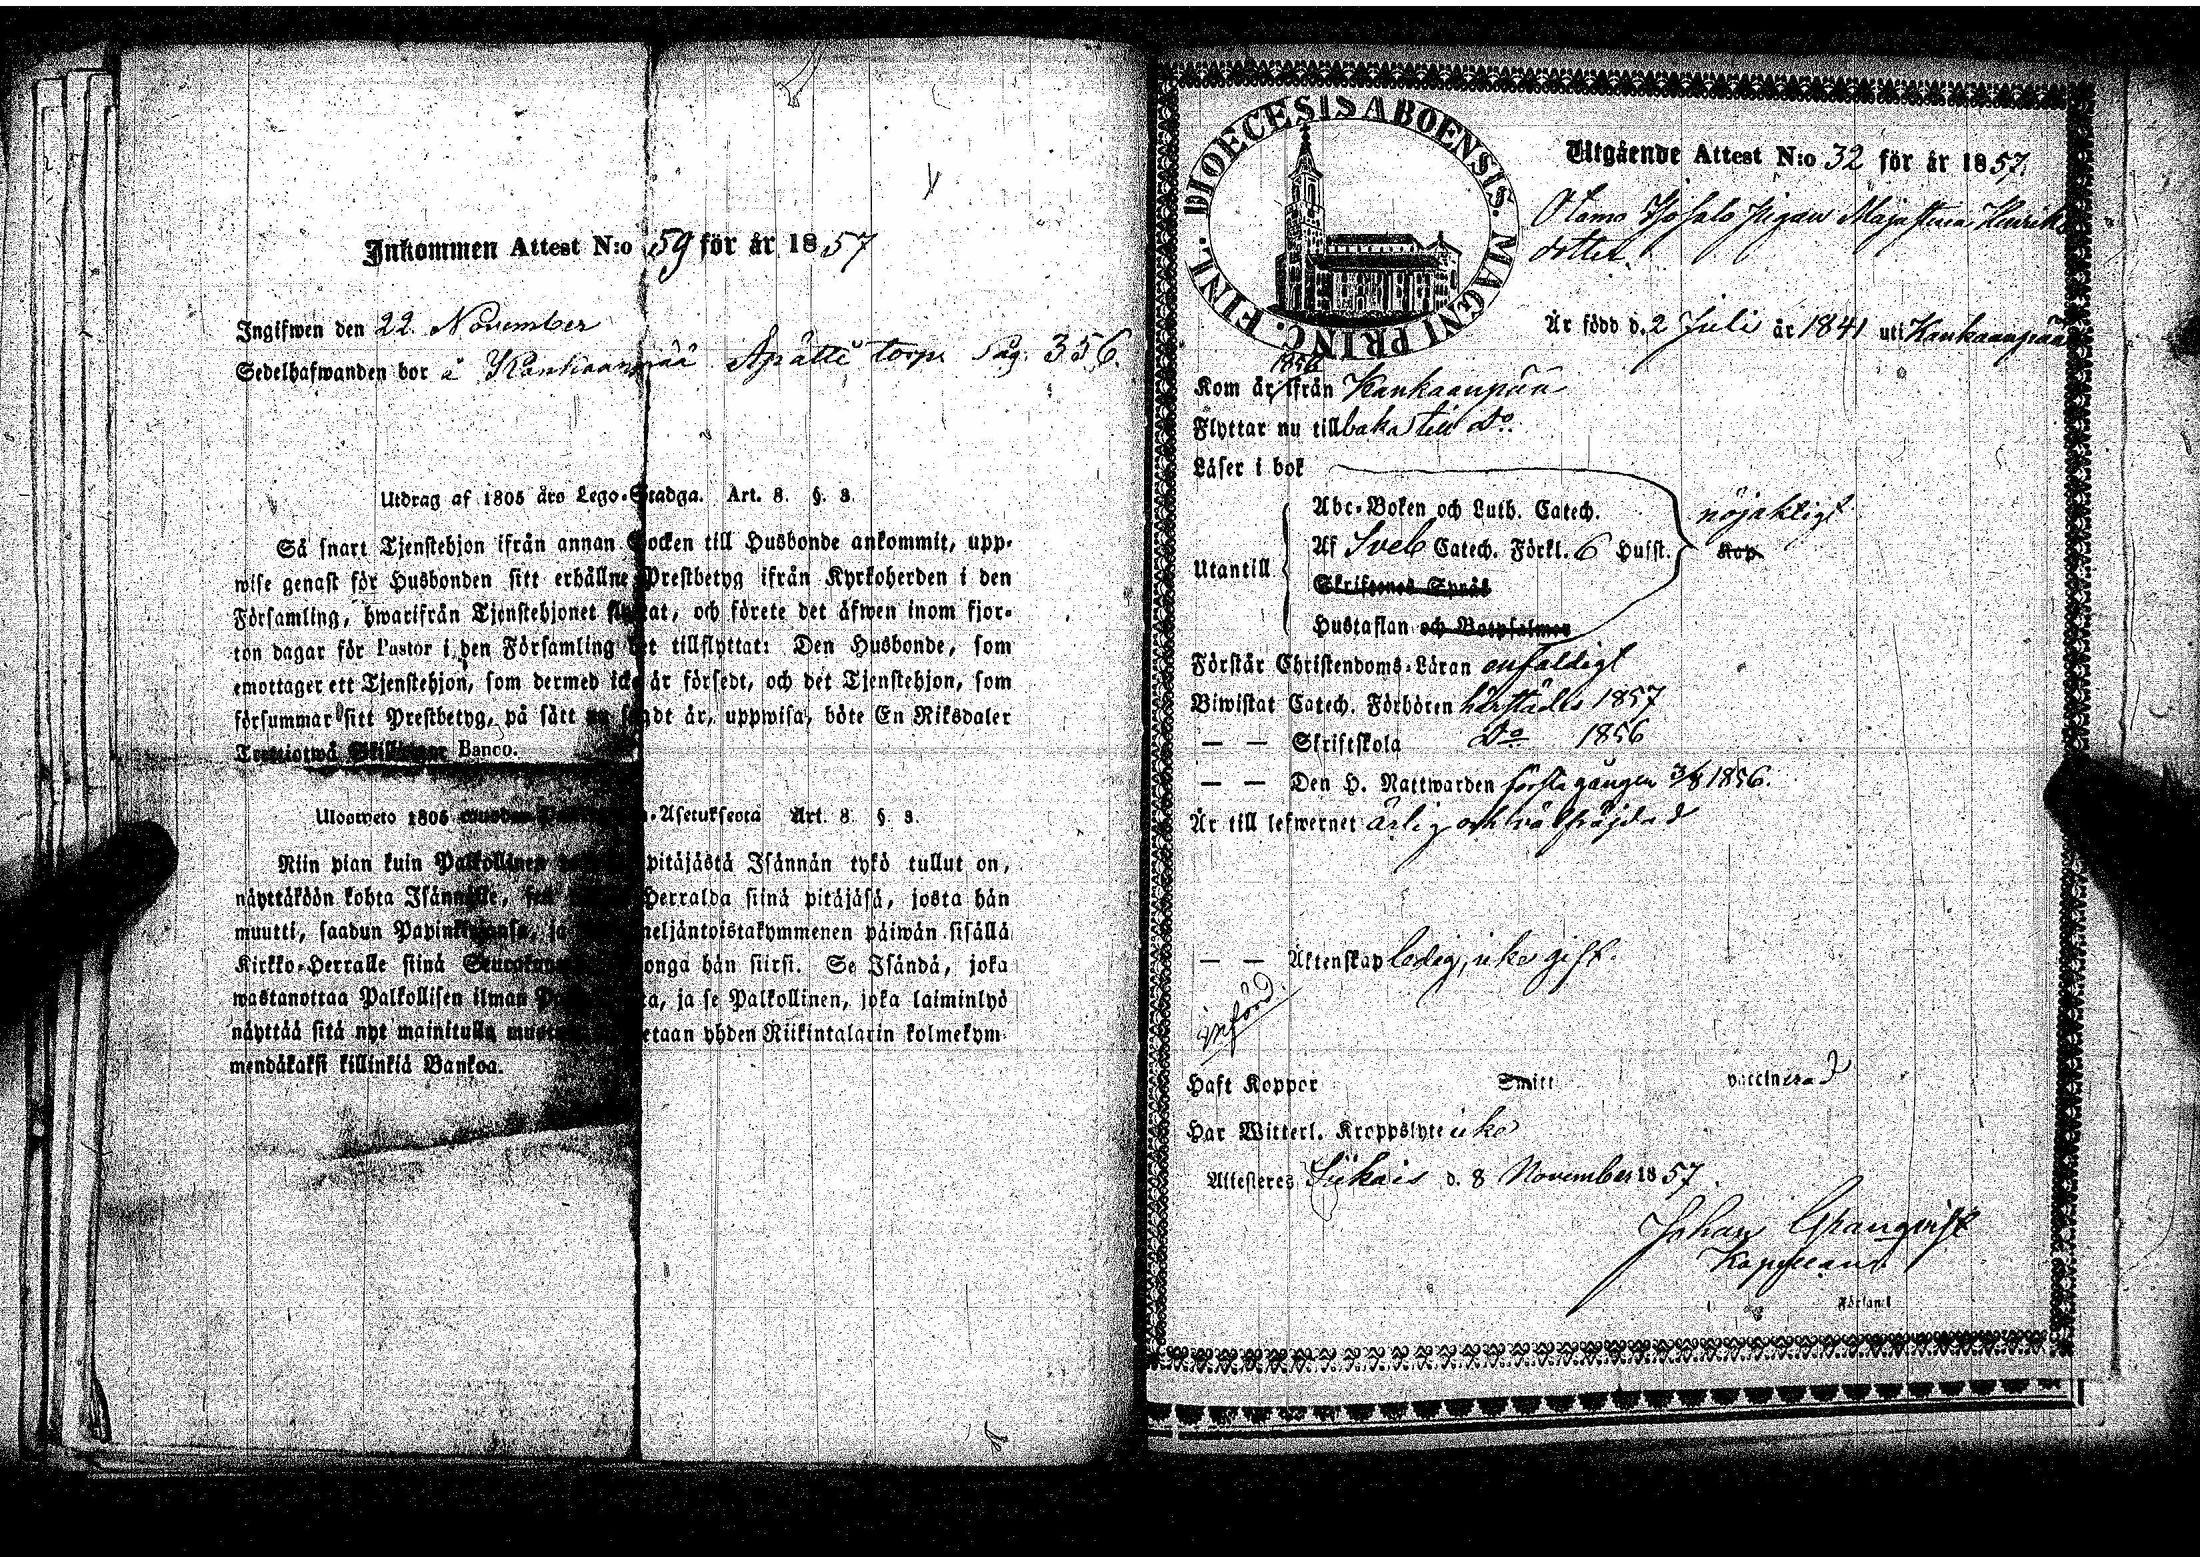 Inkommen Attest N:o 59 för år 1857
Ingifwen den 22 November
Sedelhafwanden bor å Kankaanpää torp pag. 356.
Utdrag af 1805 års Lego-Stadga. Art. 8. §. 3.
Så snart Tjenstehjon ifrån annan Socken till Husbonde ankommit, upp-
wise genast för Husbonden sitt erhållne Prestbetyg ifrån Kyrkoherden i den
Församling, hwarifrån Tjenstehjonet flyttat, och förete det äfwen inom fjor-
ton dagar för Pastor i den Församling det tillflyttat: Den Husbonde, som
emottager ett Tjenstehjon, som dermed icke är försedt, och det Tjenstehjon, som
försummar sitt Prestbetyg, på sätt nu sagdt är, uppwisa, böte En Riksdaler
Trettiotwå Skillingar Banco.
Ulosweto 1805 wuoden Asetuksesta Art. 8. §. 3.
Niin pian kuin Palkollinen pitäjästä Isännän tykö tullut on,
näyttäköön kohta Isännälle, Herralda siinä pitäjäsä, josta hän
muutti, saadun Papinkirjansa, ja neljäntoistakymmenen päiwän sisällä
Kirkko-Herralle siinä Seurakunnasa, jonga hän siirsi. Se Isändä, joka
wastanottaa Palkollisen ilman ja se Palkollinen, joka laiminlyö
näyttää sitä nyt mainitulla muotoa, wetetaan yhden Riikintalarin kolmekym-
mendäkaksi killinkiä Bankoa.
DIOECESIS ABOENSIS. MAGNI PRINC. FINL.
Utgående Attest N:o 32 för år 1857.
Otamo Pigan Maja Stina Henriks
dotter.
Är född d. 2 Juli år 1841 uti Kankaanpää
1856
Kom år ifrån Kankaanpää
Flyttar nu tillbaka till Do.
Läser i bok
Abc-Boken och Luth. Catech.
nöjaktigt
Utantill
Af Sveb Catech. Förkl. 6 Hufst.
Skriftenes Språk
Hustaflan och Botpsalmer
Förstår Christendoms-Läran enfaldigt
Biwistat Catech. Förhören härstädes 1857
— — Skriftskola Do 1856
— — Den H. Nattwarden första gången 3/8 1856.
Är till lefwernet ärlig och välfräjdad
— — Äktenskap ledig, icke gift.
införd
Haft Koppor Smitt vaccinerad
Har Witterl. Kroppslyte icke
Attesteres Siikais d. 8 November 1857.
Johan Granqvist
Kapellan.
Församl